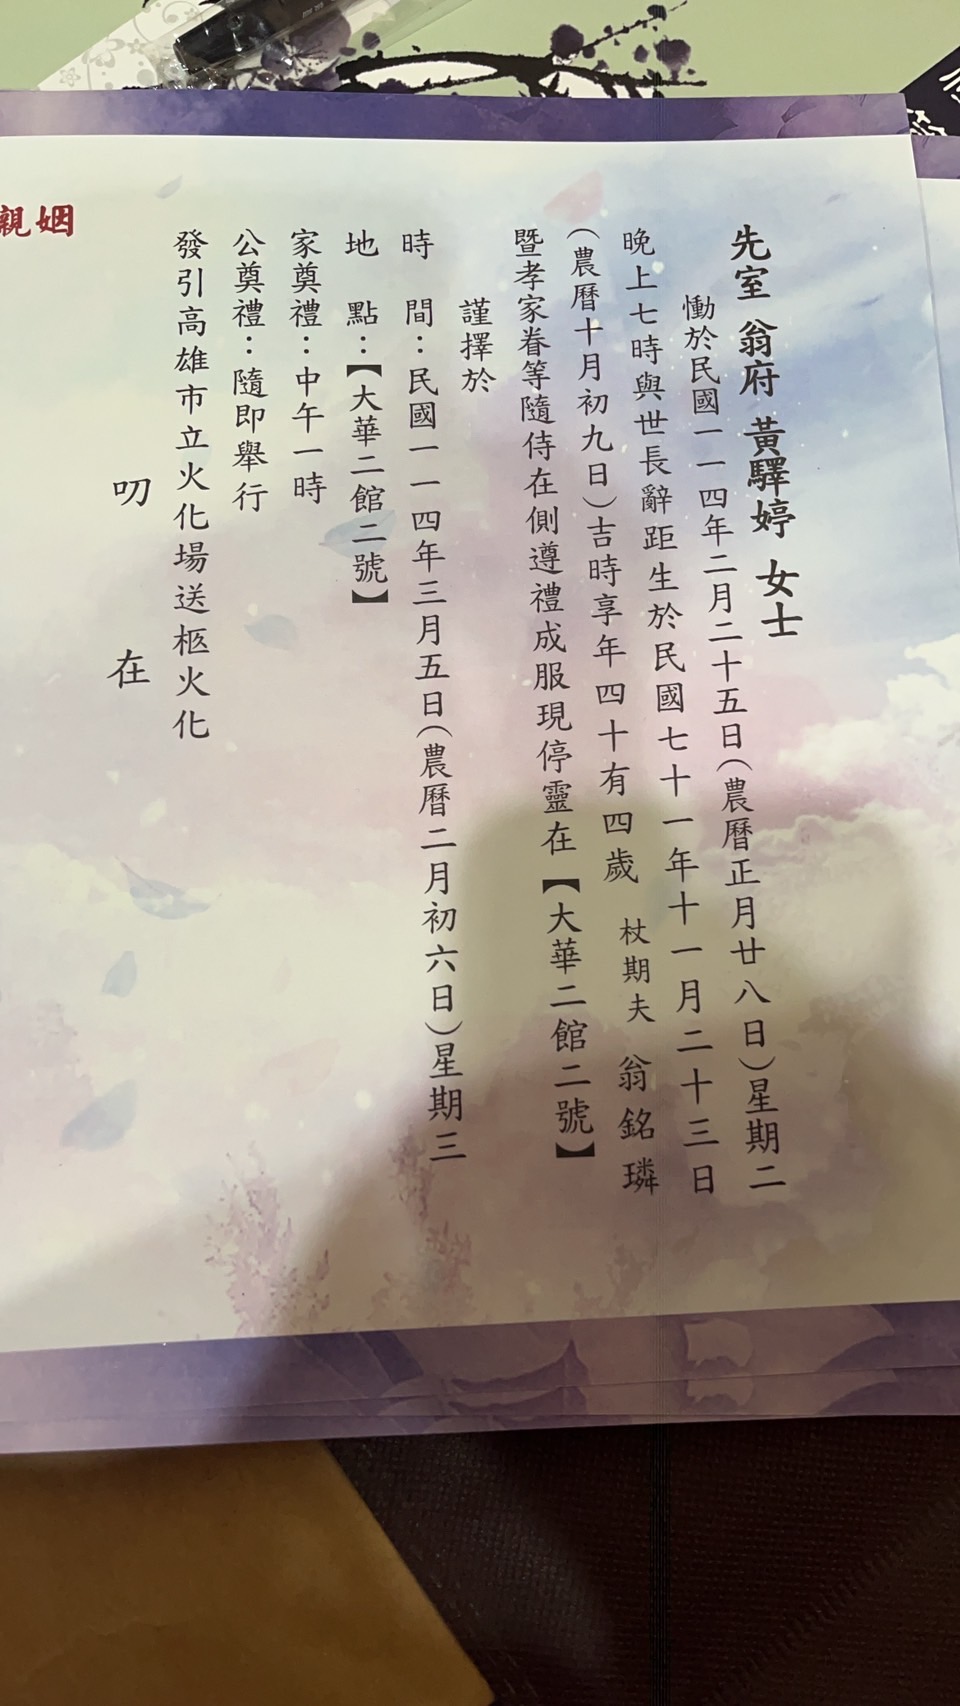 先室 翁府 黃驛婷 女士
慟於民國一一四年二月二十五日(農曆正月廿八日)星期二
晚上七時與世長辭距生於民國七十一年十一月二十三日
(農曆十月初九日)吉時享年四十有四歲 杖期夫 翁銘璘
暨孝家眷等隨侍在側遵禮成服現停靈在【大華二館二號】
謹擇於
時 間：民國一一四年三月五日(農曆二月初六日)星期三
地 點：【大華二館二號】
家奠禮：中午一時
公奠禮：隨即舉行
發引高雄市立火化場送柩火化
叨 在
姻親